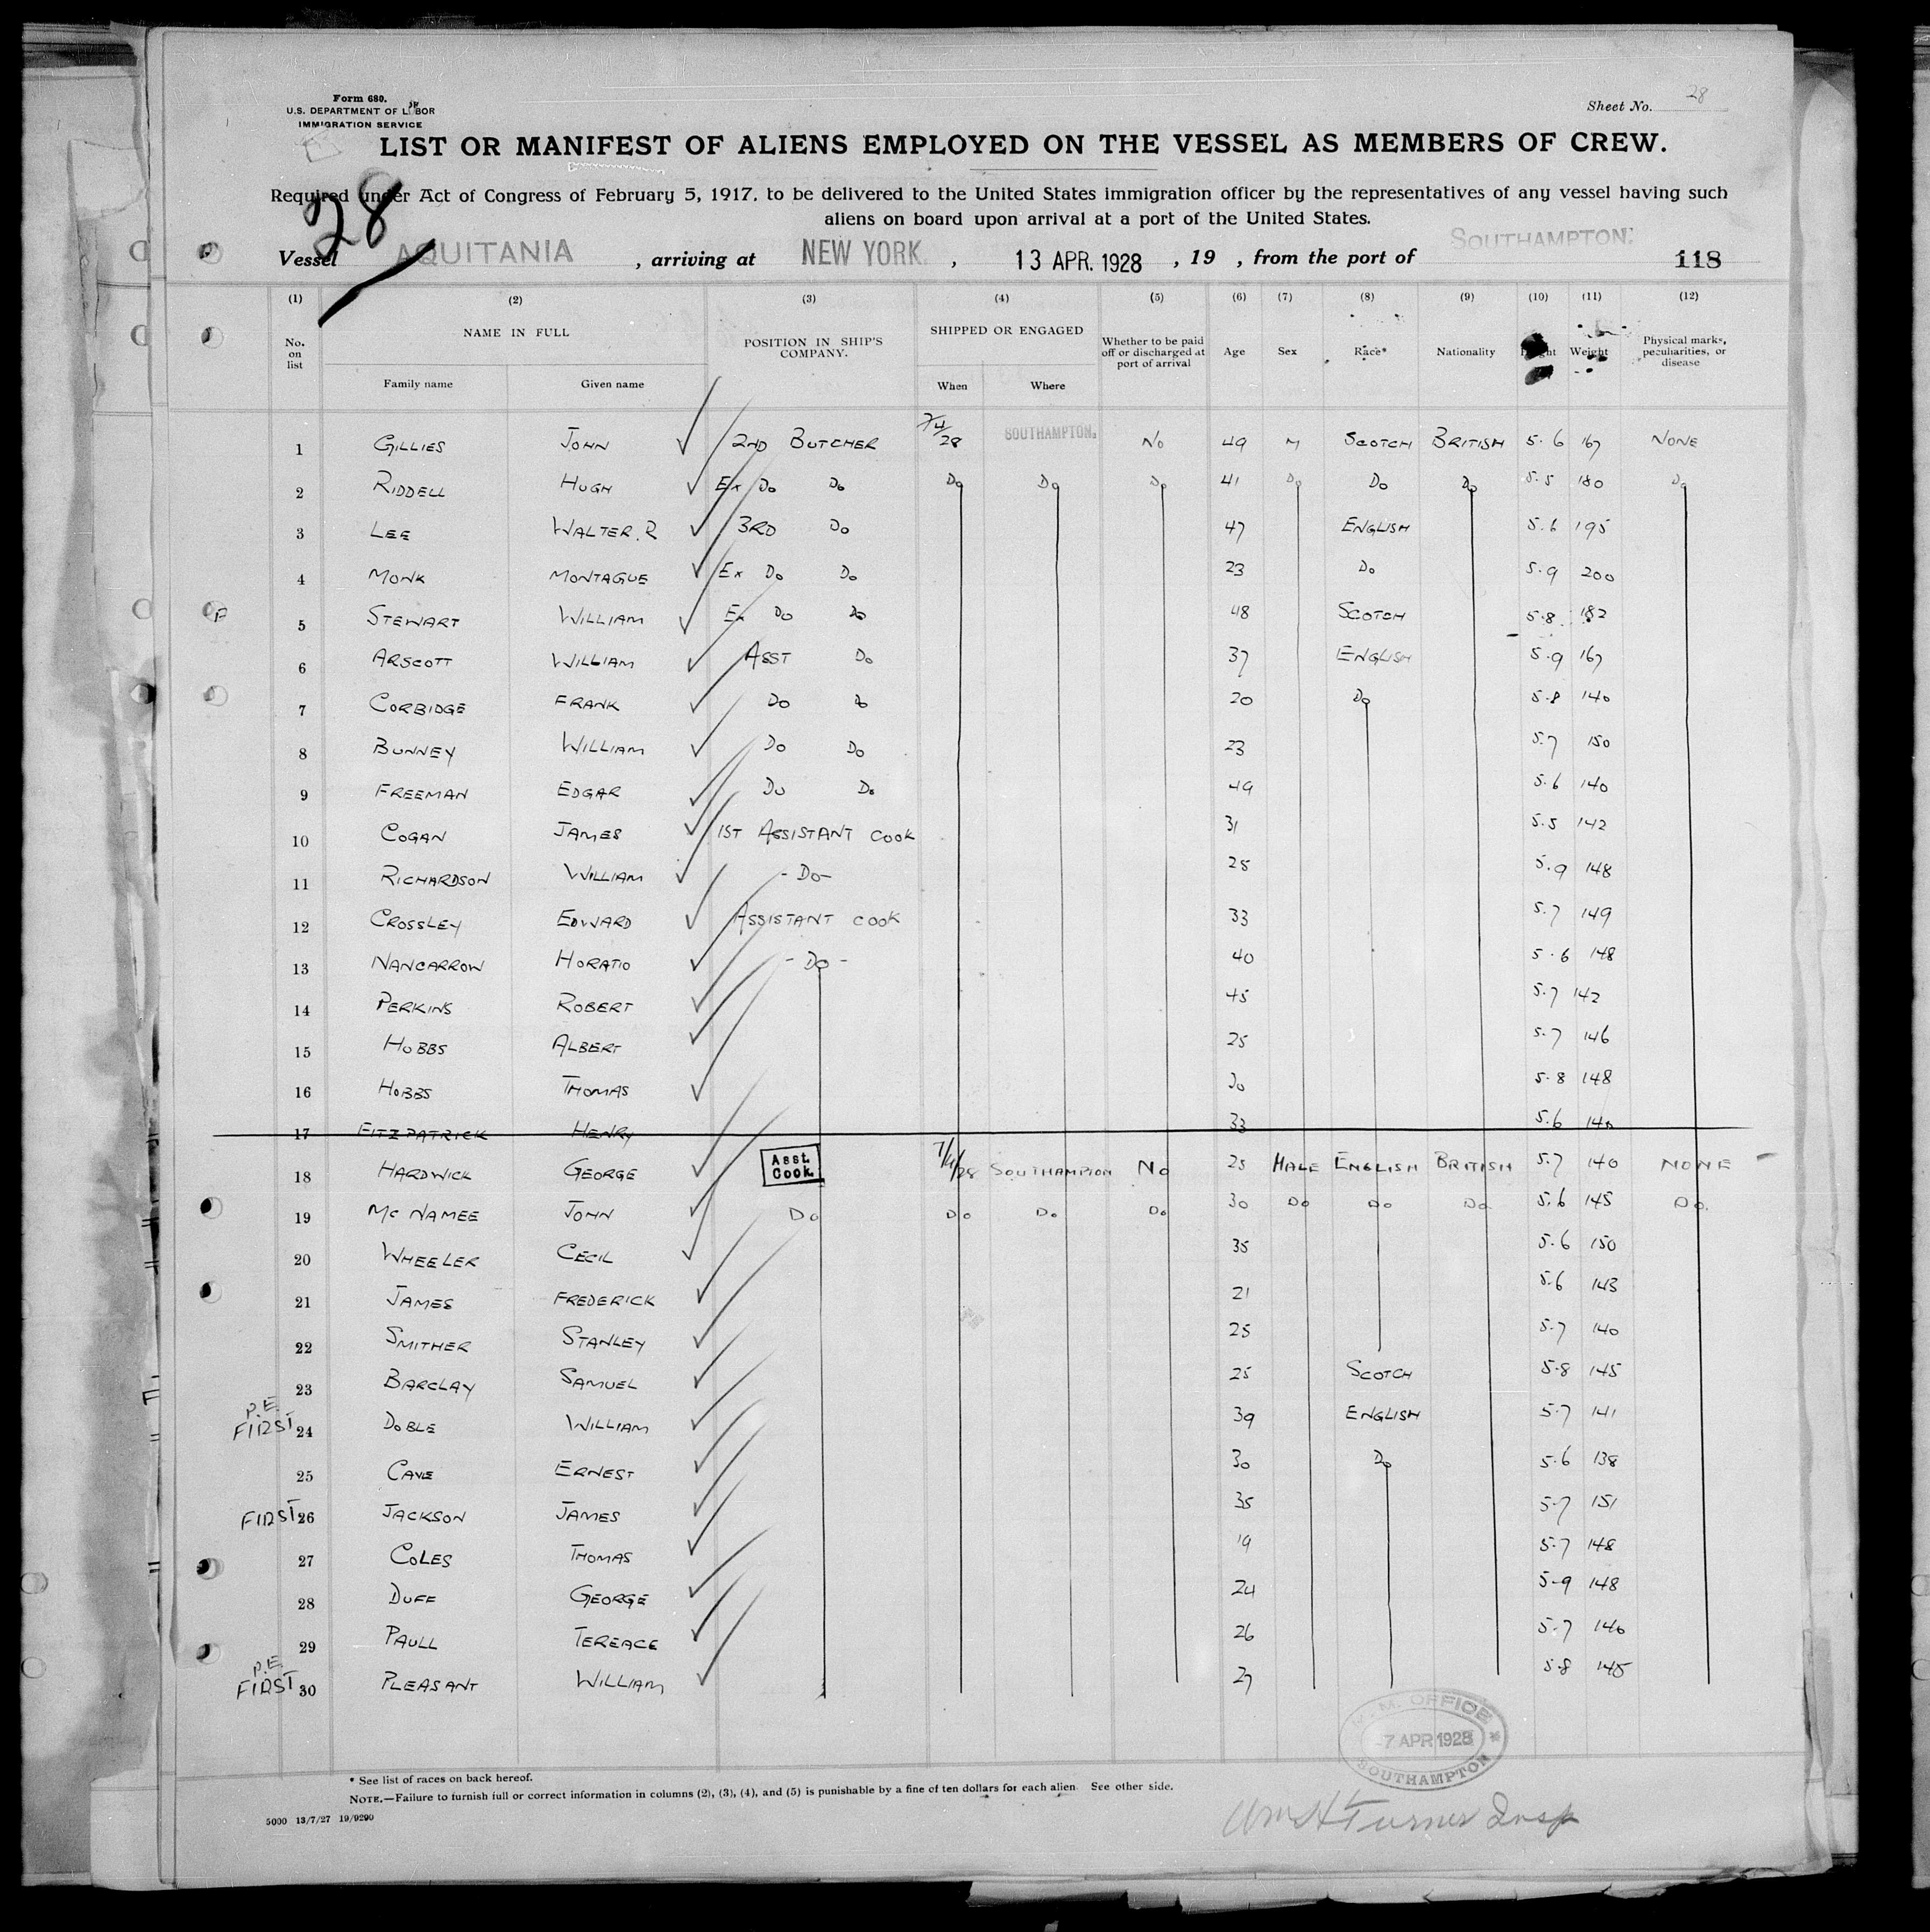 Form 680.
U.S. DEPARTMENT OF LABOR
IMMIGRATION SERVICE
Sheet No. 28
LIST OR MANIFEST OF ALIENS EMPLOYED ON THE VESSEL AS MEMBERS OF CREW.
Required under Act of Congress of February 5, 1917, to be delivered to the United States immigration officer by the representatives of any vessel having such
aliens on board upon arrival at a port of the United States.
28
Vessel AQUITANIA, arriving at NEW YORK., 13 APR. 1928, 19 , from the port of SOUTHAMPTON. 118
(1) (2) (3) (4) (5) (6) (7) (8) (9) (10) (11) (12)
No. on list NAME IN FULL POSITION IN SHIP'S COMPANY. SHIPPED OR ENGAGED Whether to be paid off or discharged at port of arrival Age Sex Race* Nationality Height Weight Physical marks, peculiarities, or disease
Family name Given name When Where
1 GILLIES JOHN 2ND BUTCHER 7/4/28 SOUTHAMPTON. No 49 M SCOTCH BRITISH 5.6 167 NONE
2 RIDDELL HUGH Ex Do Do Do Do Do 41 Do Do Do 5.5 180 Do
3 LEE WALTER.R 3RD Do 47 ENGLISH 5.6 195
4 MONK MONTAGUE Ex Do Do 23 Do 5.9 200
5 STEWART WILLIAM Ex Do Do 48 SCOTCH 5.8. 182
6 ARSCOTT WILLIAM ASST Do 37 ENGLISH 5.9 167
7 CORBIDGE FRANK Do Do 20 Do 5.8 140
8 BUNNEY WILLIAM Do Do 23 5.7 150
9 FREEMAN EDGAR Do Do 49 5.6 140
10 COGAN JAMES 1ST ASSISTANT COOK 31 5.5 142
11 RICHARDSON WILLIAM -Do- 25 5.9 148
12 CROSSLEY EDWARD ASSISTANT COOK 33 5.7 149
13 NANCARROW HORATIO -Do- 40 5.6 148
14 PERKINS ROBERT 45 5.7 142
15 HOBBS ALBERT 25 5.7 146
16 HOBBS THOMAS 30 5.8 148
17 FITZPATRICK HENRY 33 5.6 140
18 HARDWICK GEORGE Asst. Cook. 7/4/28 SOUTHAMPTON No 25 MALE ENGLISH BRITISH 5.7 140 NONE
19 Mc NAMEE JOHN Do Do Do Do 30 Do Do Do 5.6 145 Do.
20 WHEELER CECIL 35 5.6 150
21 JAMES FREDERICK 21 5.6 143
22 SMITHER STANLEY 25 5.7 140
23 BARCLAY SAMUEL 25 SCOTCH 5.8 145
P.E.
FIRST 24 DOBLE WILLIAM 39 ENGLISH 5.7 141
25 CAVE ERNEST 30 Do 5.6 138
FIRST 26 JACKSON JAMES 35 5.7 151
27 COLES THOMAS 19 5.7 148
28 DUFF GEORGE 24 5-9 148
29 PAULL TEREACE 26 5.7 140
P.E.
FIRST 30 PLEASANT WILLIAM 27 5.8 145
M. OFFICE
-7 APR 1928
SOUTHAMPTON
* See list of races on back hereof.
NOTE.—Failure to furnish full or correct information in columns (2), (3), (4), and (5) is punishable by a fine of ten dollars for each alien. See other side.
5000 13/7/27 19/9290
Wm H Turner Insp